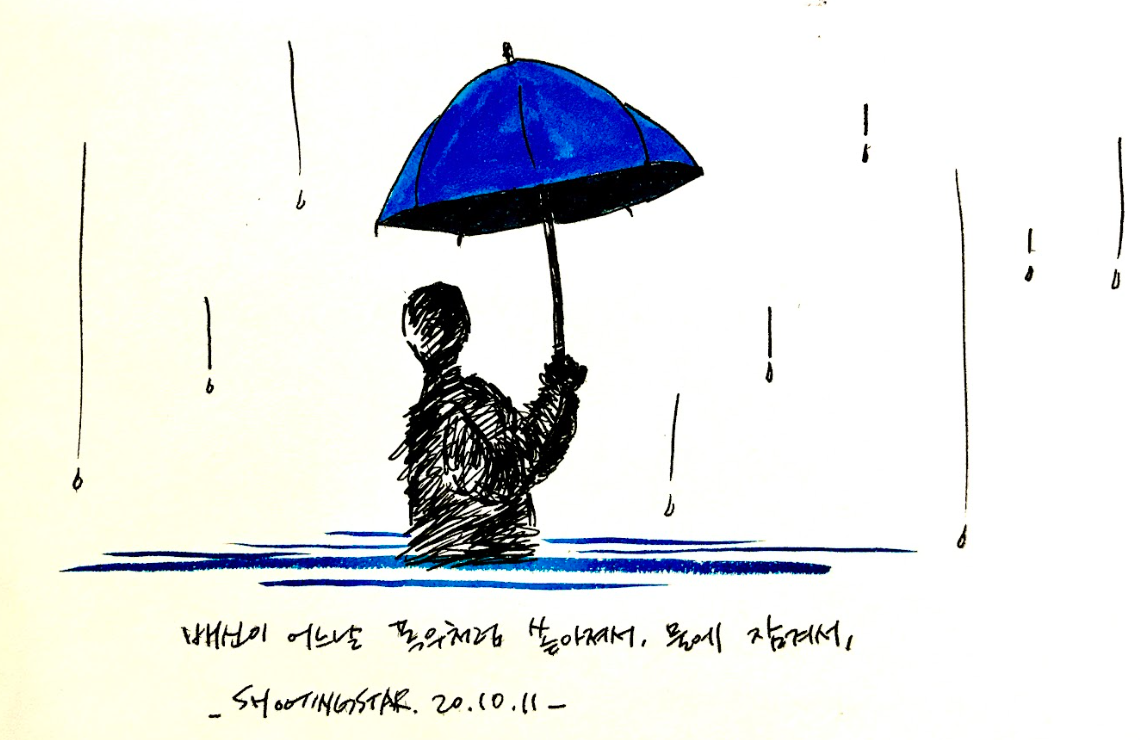 배신이 어느날 폭우처럼 쏟아져서. 물에 잠겨서,
- SHOOTINGSTAR. 20.10.11 -